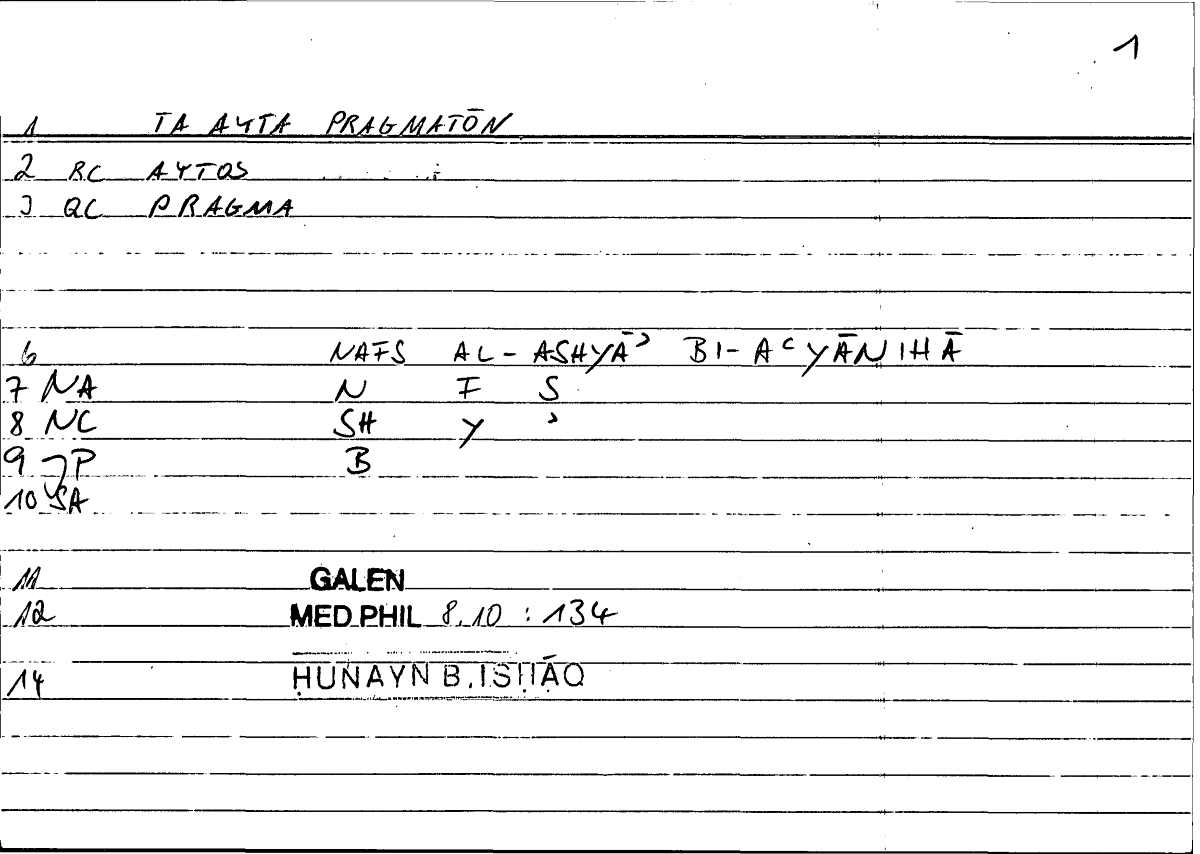 1
1 TA AYTA PRAGMATŌN
2 RC AYTOS
3 QC PRAGMA
6 NAFS AL-ASHYĀʾ BI-AʿYĀNIHĀ
7 NA N F S
8 NC SH Y ʾ
9 JP B
10 SA
11 GALEN
12 MED PHIL 8.10 : 134
14 ḤUNAYN B. ISḤĀQ